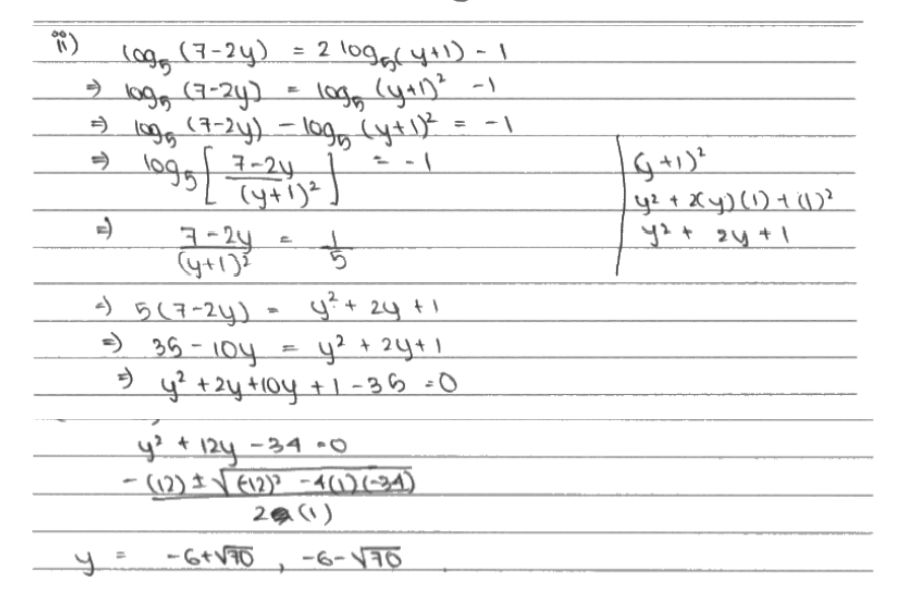 ii) log₅(7-2y) = 2 log₅(y+1) - 1
⇒ log₅(7-2y) = log₅(y+1)² - 1
⇒ log₅(7-2y) - log₅(y+1)² = -1
⇒ log₅[(7-2y)/(y+1)²] = -1
⇒ (7-2y)/(y+1)² = 1/5
(y+1)²
y² + 2(y)(1) + (1)²
y² + 2y + 1
⇒ 5(7-2y) = y² + 2y + 1
⇒ 35 - 10y = y² + 2y + 1
⇒ y² + 2y + 10y + 1 - 35 = 0
y² + 12y - 34 = 0
(-(12) ± √((12)² - 4(1)(-34)))/(2(1))
y = -6+√70 , -6-√70